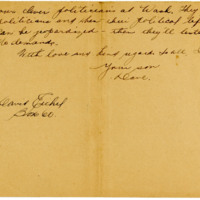 clever politicians at Wash. They
politicians and when their political
can be jeopardized – then they'll
demands.
With love and kind regards to all
Your son
Dave.
David
Box 60